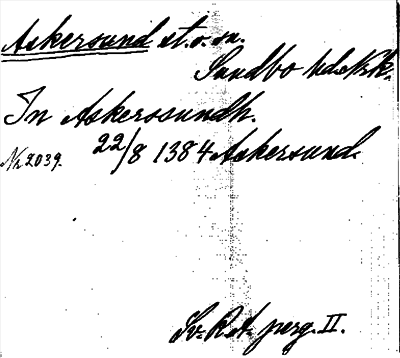 Askersund st. o. sn.
Sundbo hd. Nrk.
In Askerosundh.
Nr 2039. 22/8 1384 Askersund.
Sv. R. A. perg. II.